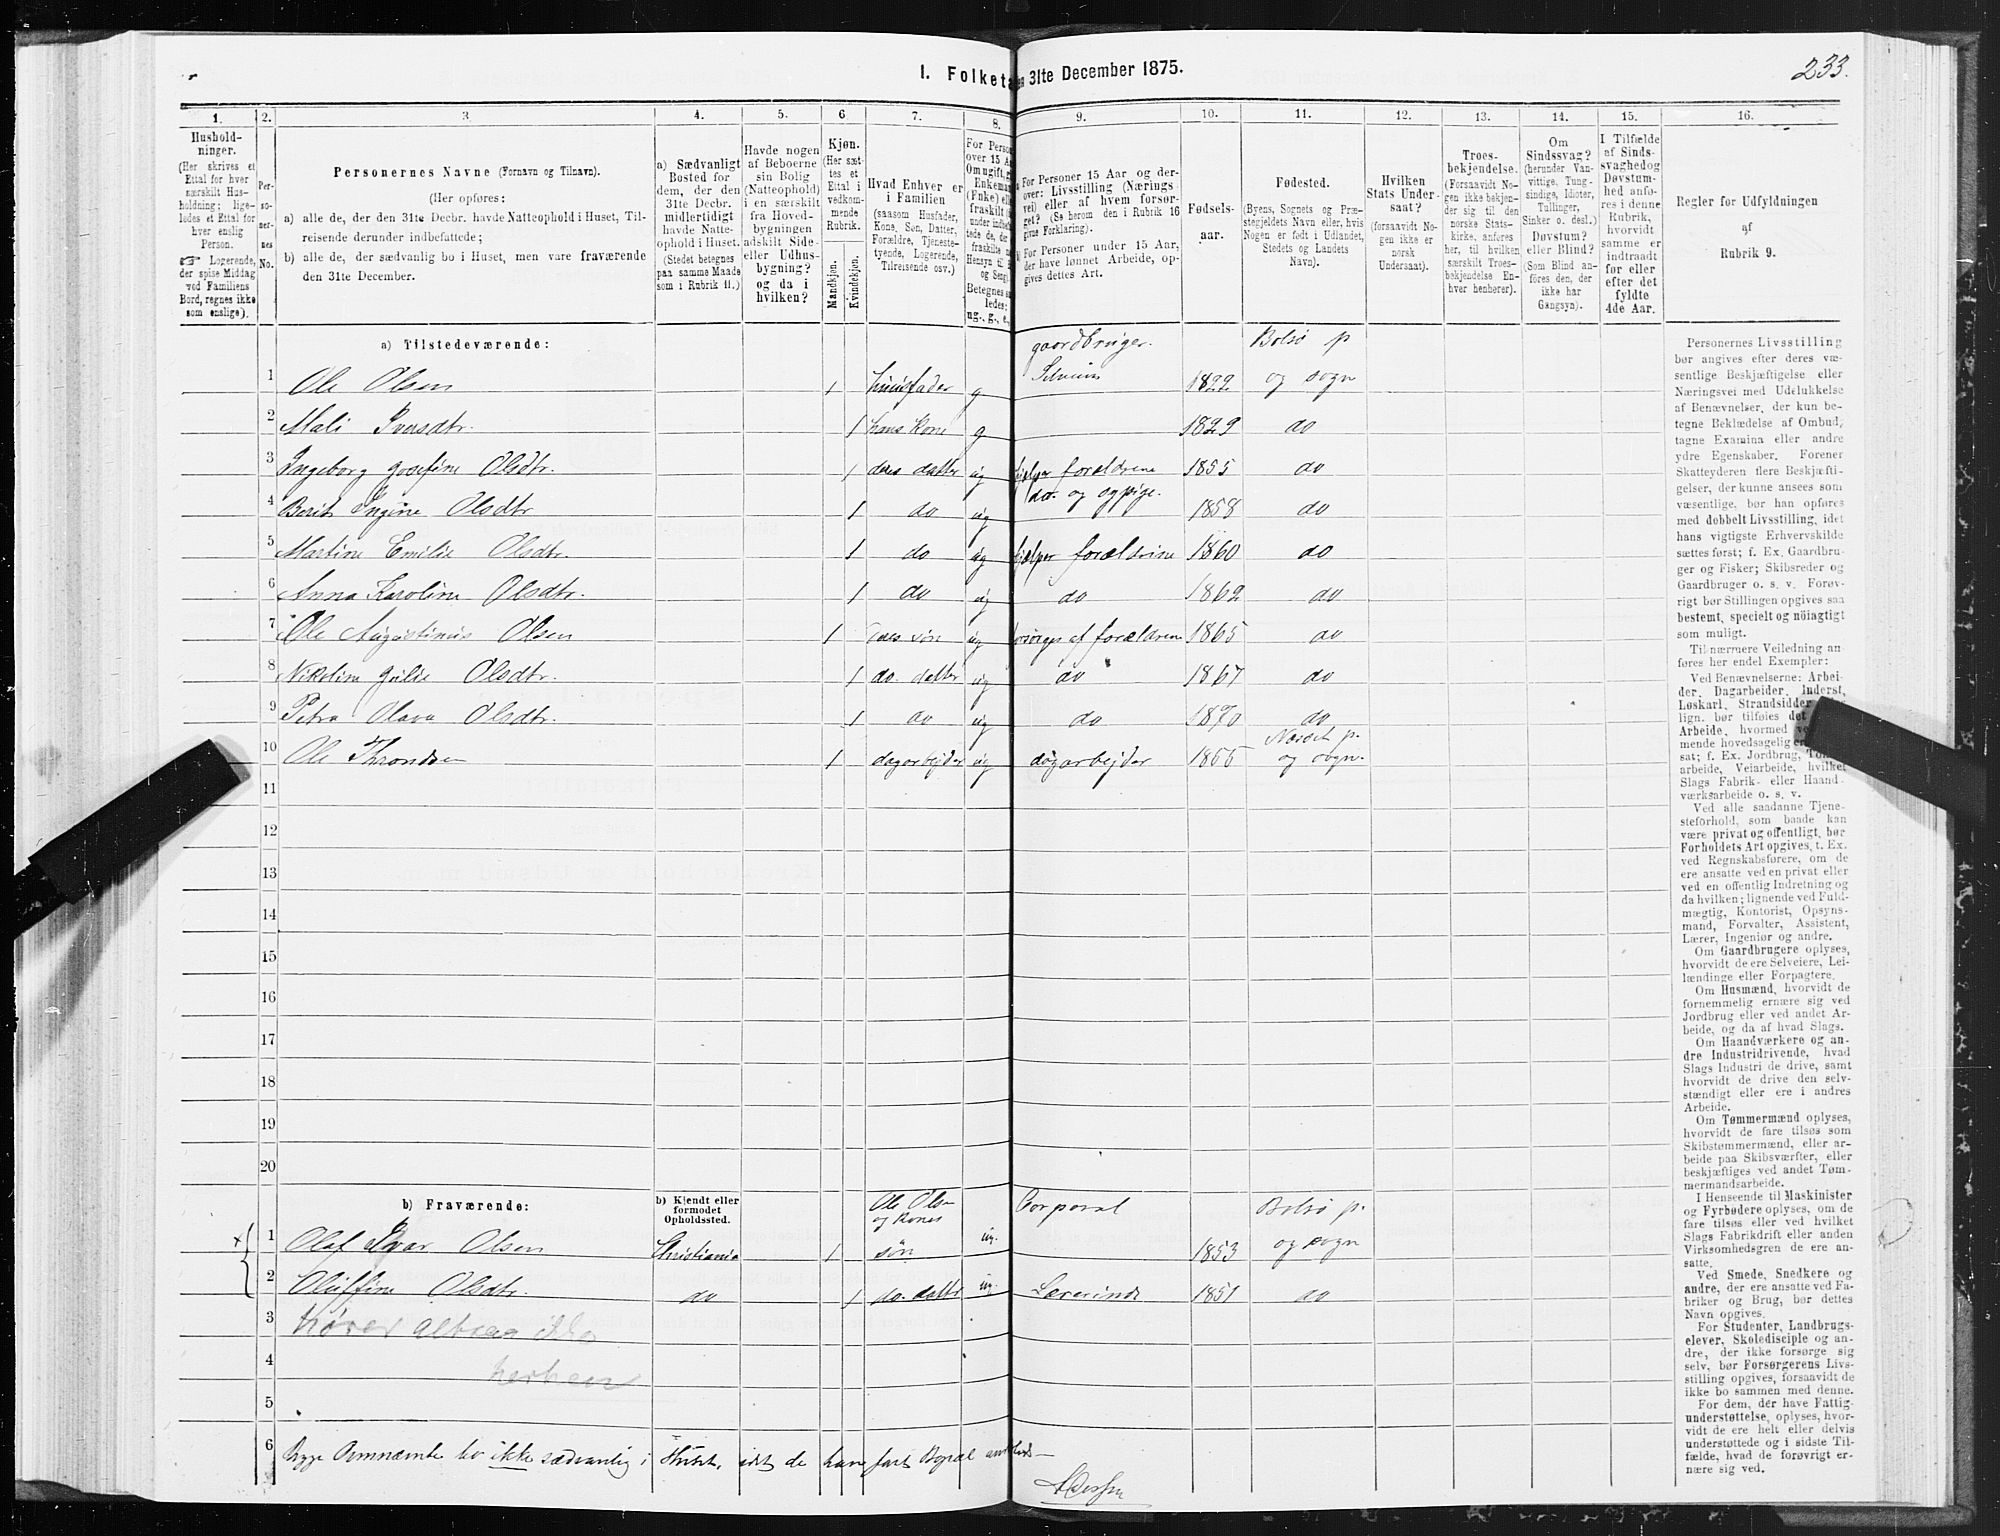 I. Folketa en 31te December 1875.
233.
1.
Hushold-
ninger.
(Her skrives et
Ettal for hver
særskilt Hus-
holdning; lige-
ledes et Ettal for
hver enslig
Person.
☞ Logerende,
der spise Middag
ved Familiens
Bord, regnes ikke
som enslige).
2.
Per-
so-
ner-
nes
No.
3.
Personernes Navne (Fornavn og Tilnavn).
(Her opføres:
a) alle de, der den 31te Decbr. havde Natteophold i Huset, Til-
reisende derunder indbefattede;
b) alle de, der sædvanlig bo i Huset, men vare fraværende
den 31te December.
4.
a) Sædvanligt
Bosted for
dem, der den
31te Decbr.
midlertidigt
havde Natte-
ophold i Huset.
(Stedet betegnes
paa samme Maade
som i Rubrik 11.)
5.
Havde nogen
af Beboerne
sin Bolig
(Natteophold)
i en særskilt
fra Hoved-
bygningen
adskilt Side-
eller Udhus-
bygning?
og da i
hvilken?
6
Kjøn.
(Her sæt-
tes et
Ettal i
vedkom-
mende
Rubrik.
Mandkjøn.
Kvindekjøn.
7.
Hvad Enhver er
i Familien
(saasom Husfader,
Kone, Søn, Datter,
Forældre, Tjeneste-
tyende, Logerende,
Tilreisende osv.)
8.
For Person
over 15 Aa
Om ugift, g
Enkeman
(Fnke) ell
fraskilt
under indbe
tede de, der
fraskilte
Hensyn til
og Seng
Betegnes
ledes:
ug., g., e.,
9.
For Personer 15 Aar og der-
over: Livsstilling (Nærings-
vei) eller af hvem forsør-
get? (Se herom den i Rubrik 16
givne Forklaring).
For Personer under 15 Aar,
der have lønnet Arbeide, op-
gives dettes Art.
10.
Fødsels-
aar.
11.
Fødested.
(Byens, Sognets og Præ-
stegjeldets Navn eller, hvis
Nogen er født i Udlandet,
Stedets og Landets
Navn).
12.
Hvilken
Stats Under-
saat?
(forsaavidt No-
gen ikke er
norsk
Undersaat).
13.
Troes-
bekjendelse.
(Forsaavidt No-
gen ikke bekjen-
der sig til den
norske Stats-
kirke, anføres
her, til hvilken
særskilt Troes-
bekjendelse En-
hver henhører).
14.
Om
Sindssvag?
(herunder Van-
vittige, Tung-
sindige, Idioter,
Tullinger,
Sinker o. desl.)
Døvstum?
eller Blind?
(Som Blind an-
føres den, der
ikke har
Gangsyn).
15.
I Tilfælde
af Sinds-
svaghed og
Døvstum-
hed anfø-
res i denne
Rubrik,
hvorvidt
samme er
indtraadt
før eller
efter det
fyldte
4de Aar.
16.
Regler for Udfyldningen
af
Rubrik 9.
a) Tilstedeværende:
gaardbruger. Bolsø p
1 Ole Olsen 1 huusfader g Selveier 1822 og sogn
2 Mali Iversdtr. 1 hans Kone g 1829 do
3 Ingeborg Josefine Olsdtr. 1 deres datter ug hjelper forældrene 1855 do
do. og sypige.
4 Berit Ingine Olsdtr 1 do ug 1858 do
5 Martine Emilie Olsdtr. 1 do ug hjelper forældrene 1860 do
6 Anna Karoline Olsdtr. 1 do ug do 1862 do
7 Ole Augustinus Olsen 1 deres søn ug forsørges af forældrene 1865 do
8 Nikoline Julie Olsdtr. 1 do. datter ug do 1867 do
9 Petra Olava Olsdtr. 1 do ug do 1870 do
Næsset p.
10 Ole Throndsen 1 dagarbejder ug dagarbejder 1855 og sogn.
11
12
13
14
15
16
17
18
19
20
b) Fraværende:
b) Kjendt eller
formodet
Opholdssted.
Ole Olsen Corporal Bolsø p.
og Kones
1 Olaf Ivar Olsen Christiania 1 søn ug. 1853 og sogn
2 Oluffine Olsdtr. do 1 do. datter ug. Lærerinde 1851 do
3 hører altsaa ikke
4 herhen
5
6 Begge Ovennævnte bo ikke sædvanlig i Huset, idet de have fast Bopæl andetsteds
Personernes Livsstilling
bør angives efter deres væ-
sentlige Beskjæftigelse eller
Næringsvei med Udelukkelse
af Benævnelser, der kun be-
tegne Beklædelse af Ombud,
tagne Examina eller andre
ydre Egenskaber. Forener
Skatteyderen flere Beskjæfti-
gelser, der kunne ansees som
væsentlige, bør han opføres
med dobbelt Livsstilling, idet
hans vigtigste Erhvervskilde
sættes først; f. Ex. Gaardbru-
ger og Fisker; Skibsreder og
Gaardbruger o. s. v. Forøv-
rigt bør Stillingen opgives saa
bestemt, specielt og nöiagtigt
som muligt.
Til nærmere Veiledning an-
føres her endel Exempler:
Ved Benævnelserne: Arbei-
der, Dagarbeider, Inderst,
Løskarl, Strandsidder
lign. bør tilføies det
Arbeide, hvormed ve
mende hovedsagelig er
sat; f. Ex. Jordbrug, Tøm
arbeide, Veiarbeide, hvilket
Slags Fabrik- eller Haand-
værksarbeide o. s. v.
Ved alle saadanne Tjene-
steforhold, som baade kan
være privat og offentligt, bør
Forholdets Art opgives, t. Ex.
ved Regnskabsførere, om de
ere ansatte ved en privat eller
ved en offentlig Indretning og
da hvilken; lignende ved Fuld-
mægtig, Kontorist, Opsyns-
mand, Forvalter, Assistent,
Lærer, Ingeniør og andre.
Om Gaardbrugere oplyses,
hvorvidt de ere Selveiere, Lei-
lændinge eller Forpagtere.
Om Husmænd, hvorvidt de
fornemmelig ernære sig ved
Jordbrug eller ved andet Ar-
beide, og da af hvad Slags.
Om Haandværkere og an-
dre Industridrivende, hvad
Slags Industri de drive, samt
hvorvidt de drive den selv-
stændigt eller ere i andres
Arbeide.
Om Tømmermænd oplyses,
hvorvidt de fare tilsøs som
Skibstømmermænd, eller ar-
beide paa Skibsværfter, eller
beskjæftiges ved andet Tøm-
mermandsarbeide.
I Henseende til Maskinister
og Fyrbødere oplyses, om de
fare tilsøs eller ved hvilket
Slags Fabrikdrift eller anden
Virksomhedsgren de ere an-
satte.
Ved Smede, Snedkere og
andre, der ere ansatte ved Fa-
briker og Brug, bør dettes
Navn opgives.
For Studenter, Landbrugs-
elever, Skoledisciple og an-
dre, der ikke forsørge sig
selv, bør Forsørgerens Livs-
stilling opgives, forsaavidt de
ikke bo sammen med denne.
For dem, der have Fattig-
understøttelse, oplyses, hvor-
vidt de ere helt eller delvis
understøttede og i sidste Til-
fælde, hvad de forøvrigt er-
nære sig ved.